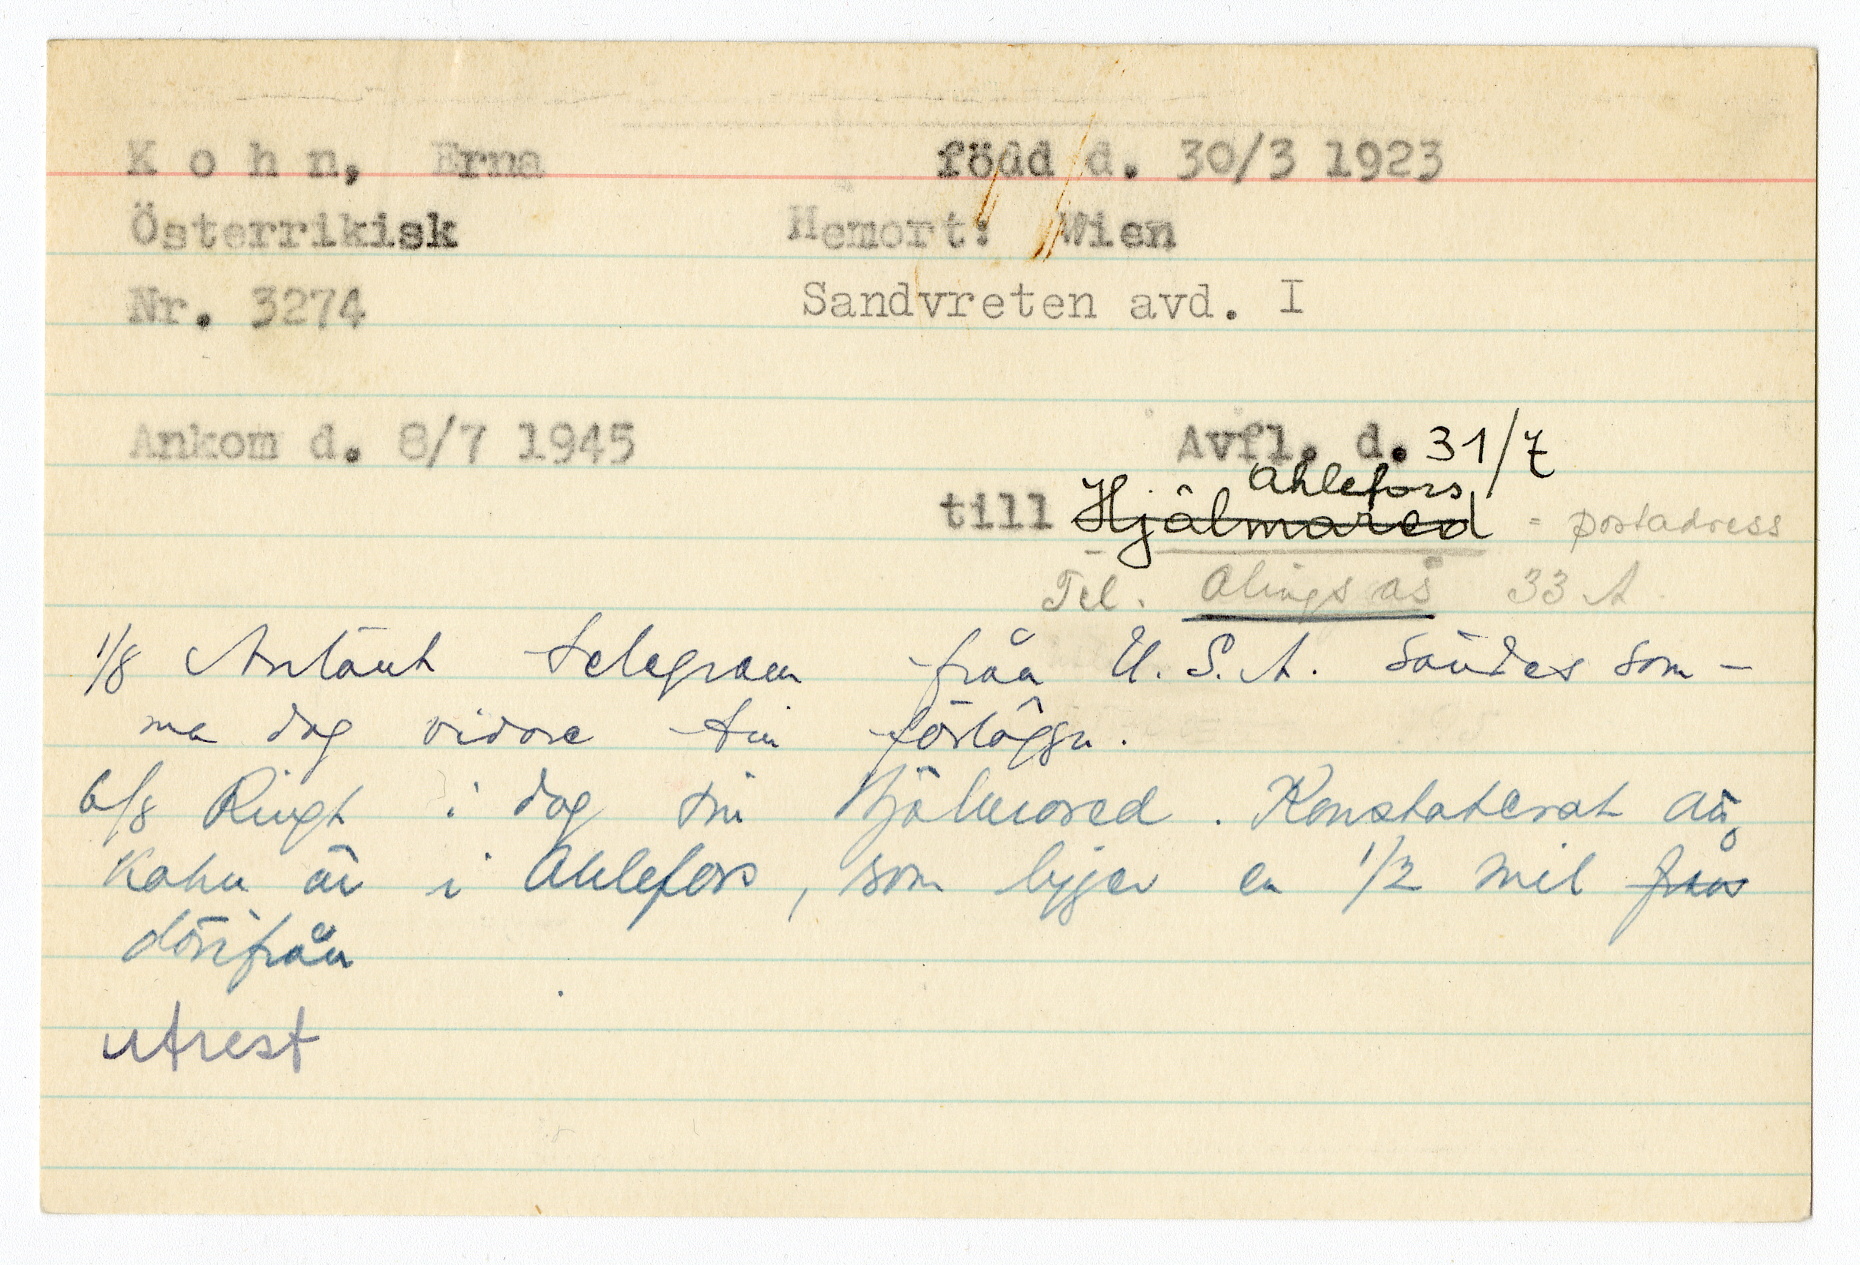 K o h n, Erna född d. 30/3 1923
Österrikisk Hemort: Wien
Nr. 3274 Sandvreten avd. I
Ankom d. 8/7 1945 Avfl. d. 31/7
Ahlefors
till Hjälmared = postadress
Tel. Alingsås 33 A
1/8 Anlänt telegram från U.S.A. Sändes sam-
ma dag vidare till förläggn.
6/8 Ringt i dag till Hjälmared. Konstaterat att
Kohn är i Ahlefors, som ligger en 1/2 mil från
därifrån
utrest